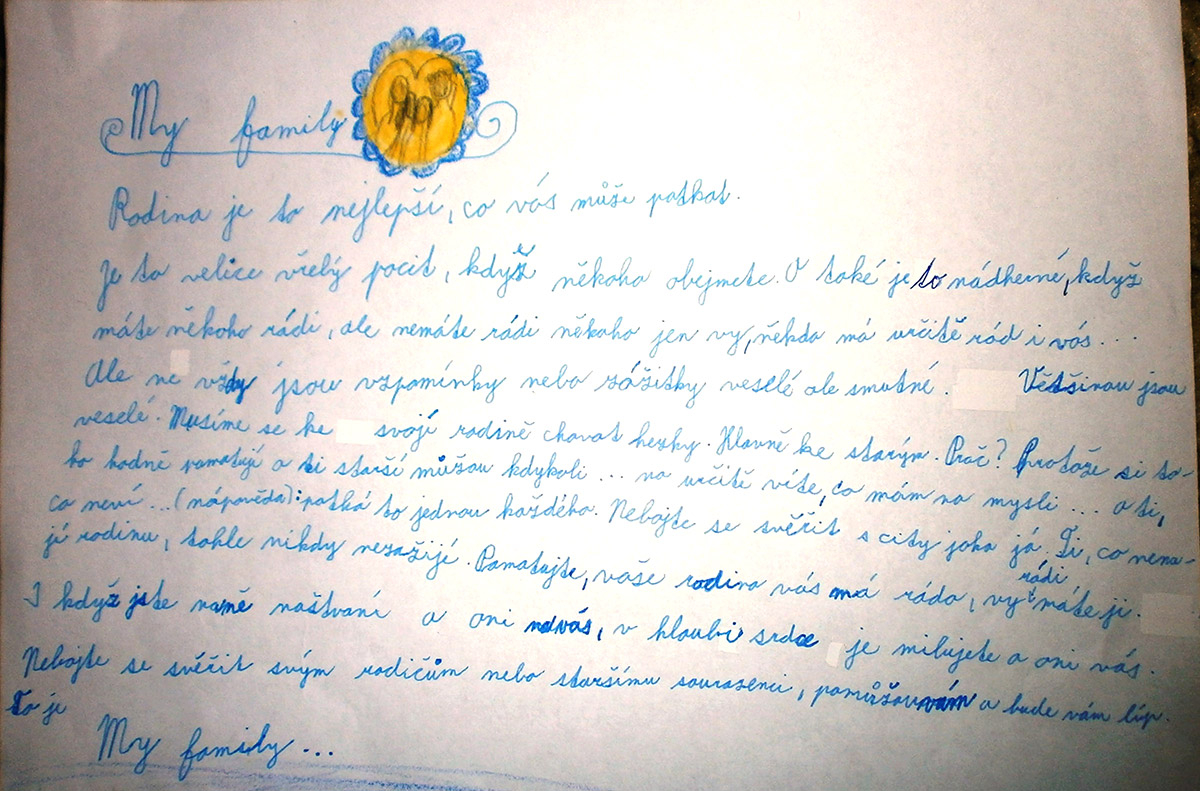 My family
Rodina je to nejlepší, co vás může potkat.
Je to velice vřelý pocit, když někoho obejmete. A také je to nádherné, když
máte někoho rádi, ale nemáte rádi někoho jen vy, někdo má určitě rád i vás...
Ale ne vždy jsou vzpomínky nebo zážitky veselé ale smutné. Většinou jsou
veselé. Musíme se ke svojí rodině chovat hezky. Hlavně ke starým. Proč? Protože si to-
ho hodně pamatují a ti starší můžou kdykoli ... no určitě víte, co mám na mysli ... a ti,
co neví ... (nápověda): potká to jednou každého. Nebojte se svěřit s city jako já. Ti, co nena-
jí rodinu, tohle nikdy nezažijí. Pamatujte, vaše rodina vás má ráda, vy máte ji rádi.
I když jste na mě naštvaní a oni na vás, v hloubi srdce je milujete a oni vás.
Nebojte se svěřit svým rodičům nebo staršímu sourozenci, pomůžou vám a bude vám líp.
To je
My family...